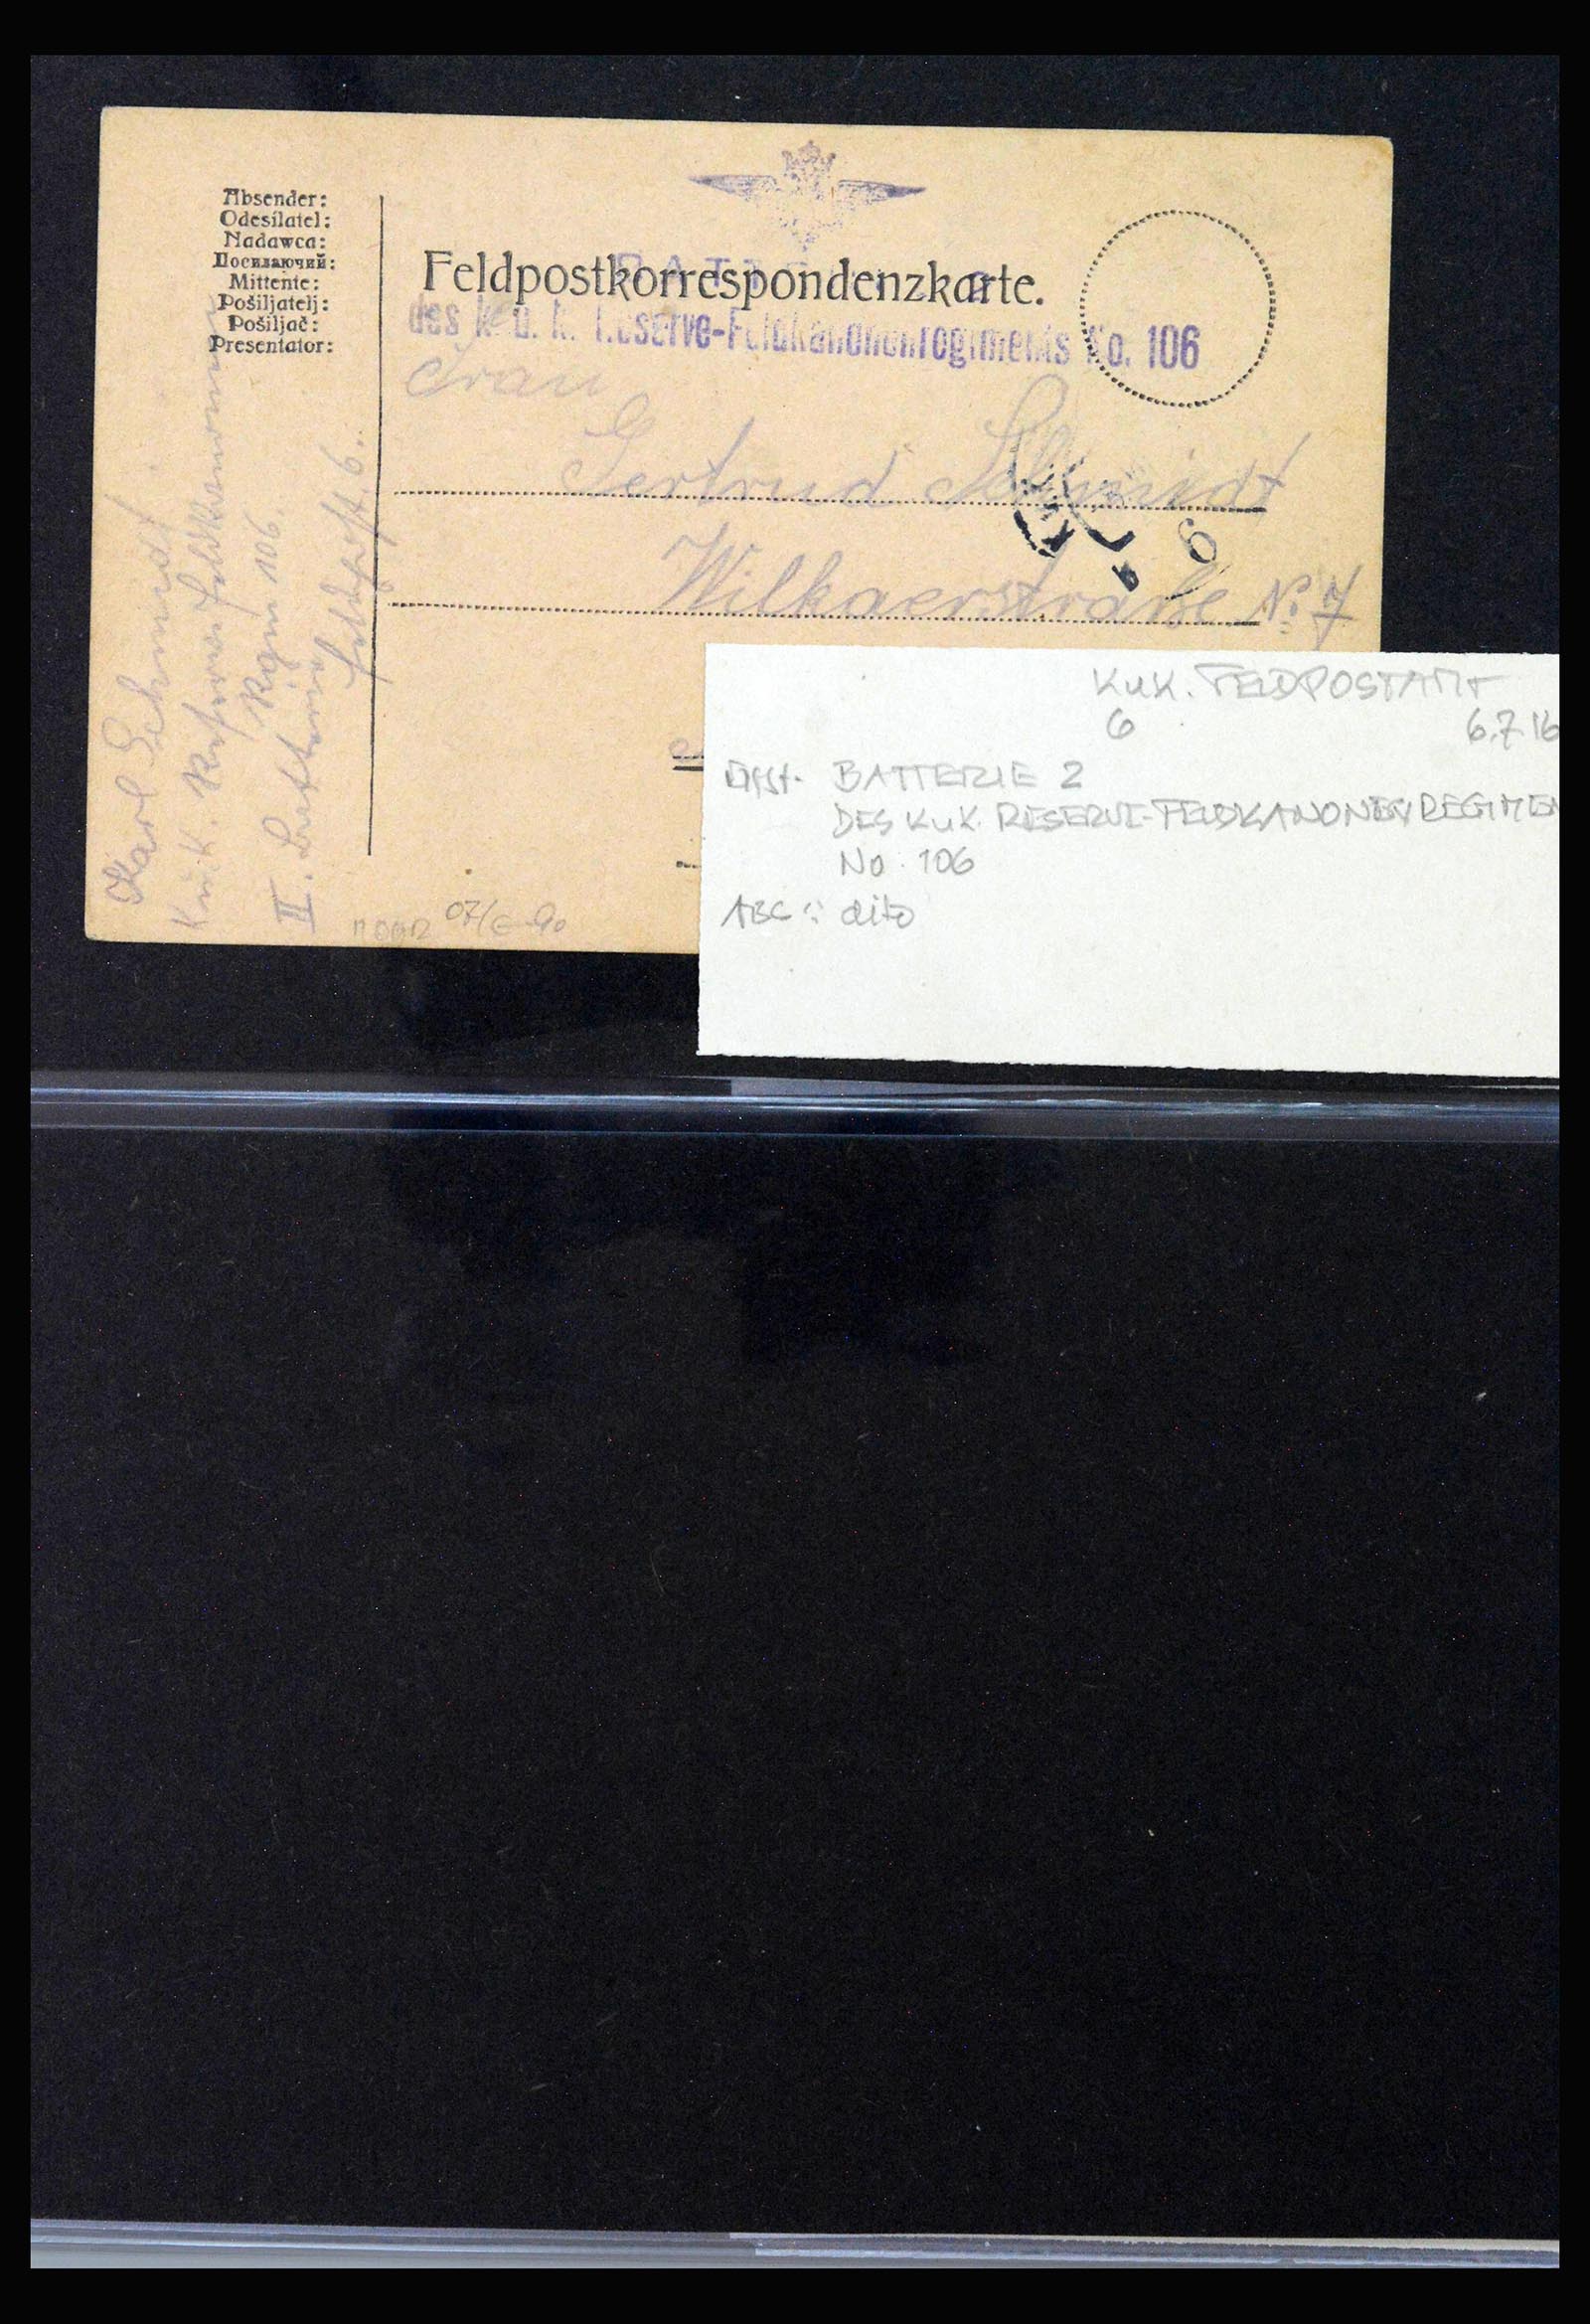 Absender:
Odesílatel:
Nadawca:
Посилаючий:
Mittente:
Pošiljatelj:
Pošiljač:
Presentator:
Feldpostkorrespondenzkarte.
des k. u. k. Reserve-Feldkanonenregiments No. 106
Frau
Gertrud Schmidt
Wilkaerstraße No 7
Karl Schmidt
K. u. K. Reserve Feldkanonen
Rgm 106
II. Batterie
Feldpost 6.
07/6-90
KuK. FELDPOSTAMT
6 6.7.16
BATTERIE 2
DES KuK. RESERVE-FELDKANONENREGIMEN
No. 106
ABS: dito